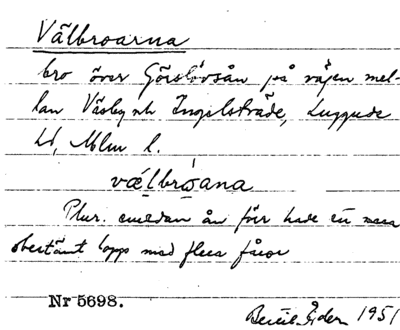 Välbroarna
bro över Görslövsån på vägen mel-
lan Väsby och Ingelsträde, Luggude
hd, Mlm l.
vælbroana
Plur. emedan ån förr hade en mera
obestämt lopp med flera fåror
Nr 5698. Bertil Ejder 1951